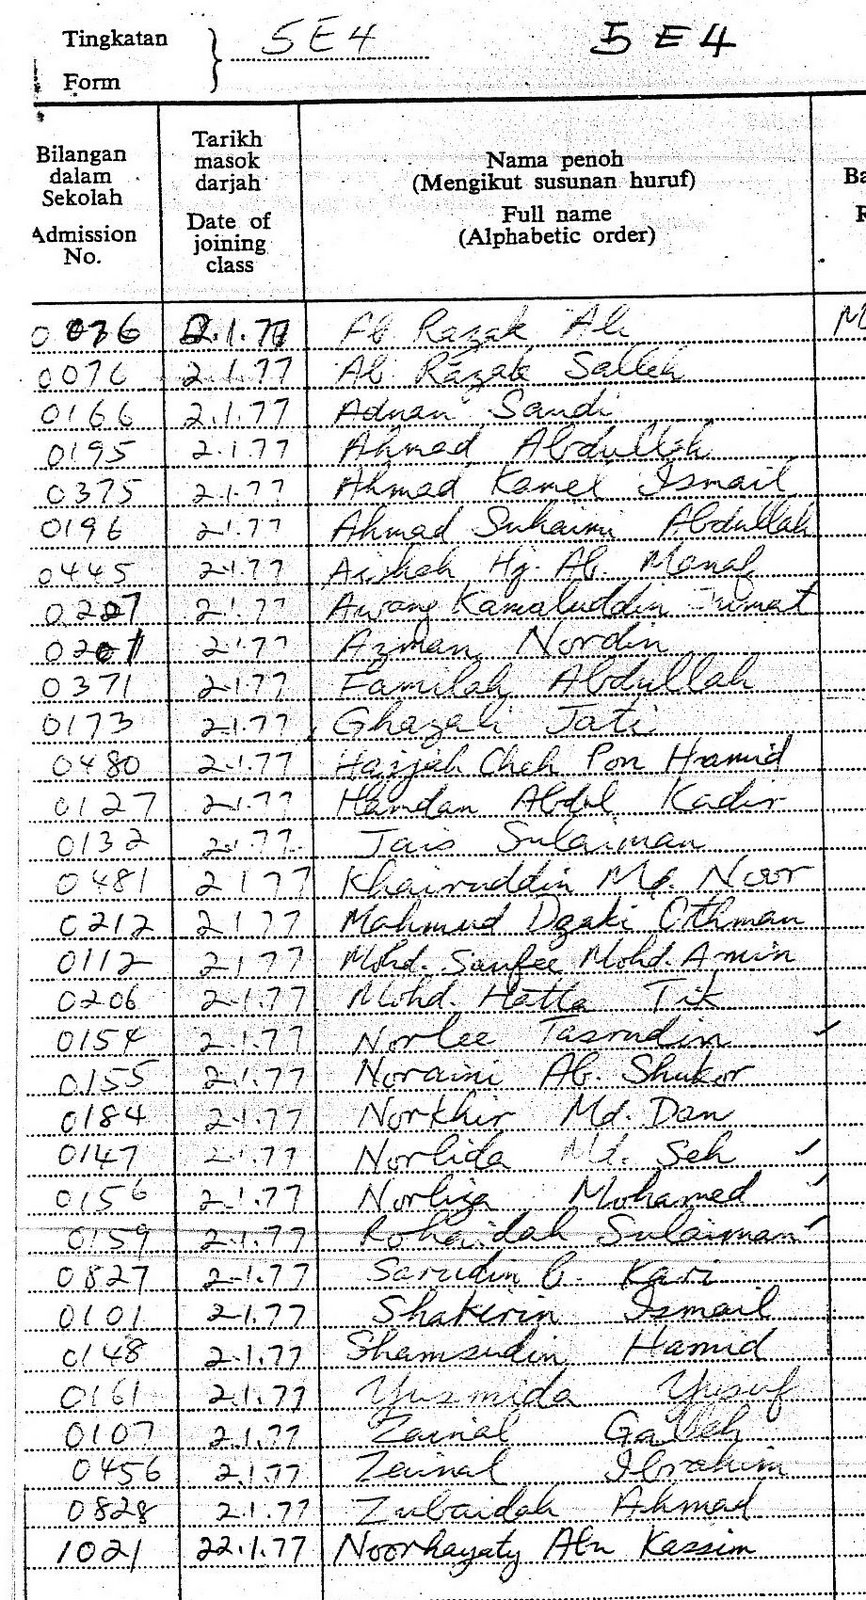 Tingkatan
Form
5E4
5E4
Bilangan
dalam
Sekolah
Admission
No.
Tarikh
masok
darjah
Date of
joining
class
Nama penoh
(Mengikut susunan huruf)
Full name
(Alphabetic order)
Ba
R
0076 2.1.77 Ab Razak Ali M
0076 2.1.77 Ab. Razak Salleh
0166 2.1.77 Adnan Sandi
0195 2.1.77 Ahmad Abdullah
0375 2.1.77 Ahmad Kamel Ismail
0196 2.1.77 Ahmad Suhaimi Abdullah
0445 2.1.77 Aishah Hj. Ab. Manaf
0207 2.1.77 Awang Kamaluddin Jumat
0201 2.1.77 Azman Nordin
0371 2.1.77 Familah Abdullah
0173 2.1.77 Ghazali Jati
0480 2.1.77 Hajjah Cheh Pon Hamid
0127 2.1.77 Hamdan Abdul Kadir
0132 2.1.77 Jais Sulaiman
0481 2 1 77 Khairuddin Md. Noor
0212 2 1 77 Mahmud Dzaki Othman
0112 2 1 77 Mohd. Saufee Mohd. Amin
0206 2.1.77 Mohd. Hatta Tik
0154 2.1.77 Norlee Tasrudin ✓
0155 2.1.77 Noraini Ab. Shukor
0184 2.1.77 Norkhir Md. Dan
0147 2.1.77 Norlida Md. Seh ✓
0156 2.1.77 Norliza Mohamed ✓
0159 2.1.77 Rohaidah Sulaiman ✓
0827 2.1.77 Sarudin b. Kari
0101 2.1.77 Shakirin Ismail
0148 2.1.77 Shamsudin Hamid
0161 2.1.77 Yusmida Yusuf
0107 2.1.77 Zainal Galleh
0456 2.1.77 Zainal Ibrahim
0828 2.1.77 Zubaidah Ahmad
1021 22.1.77 Noorhayaty Abu Kassim